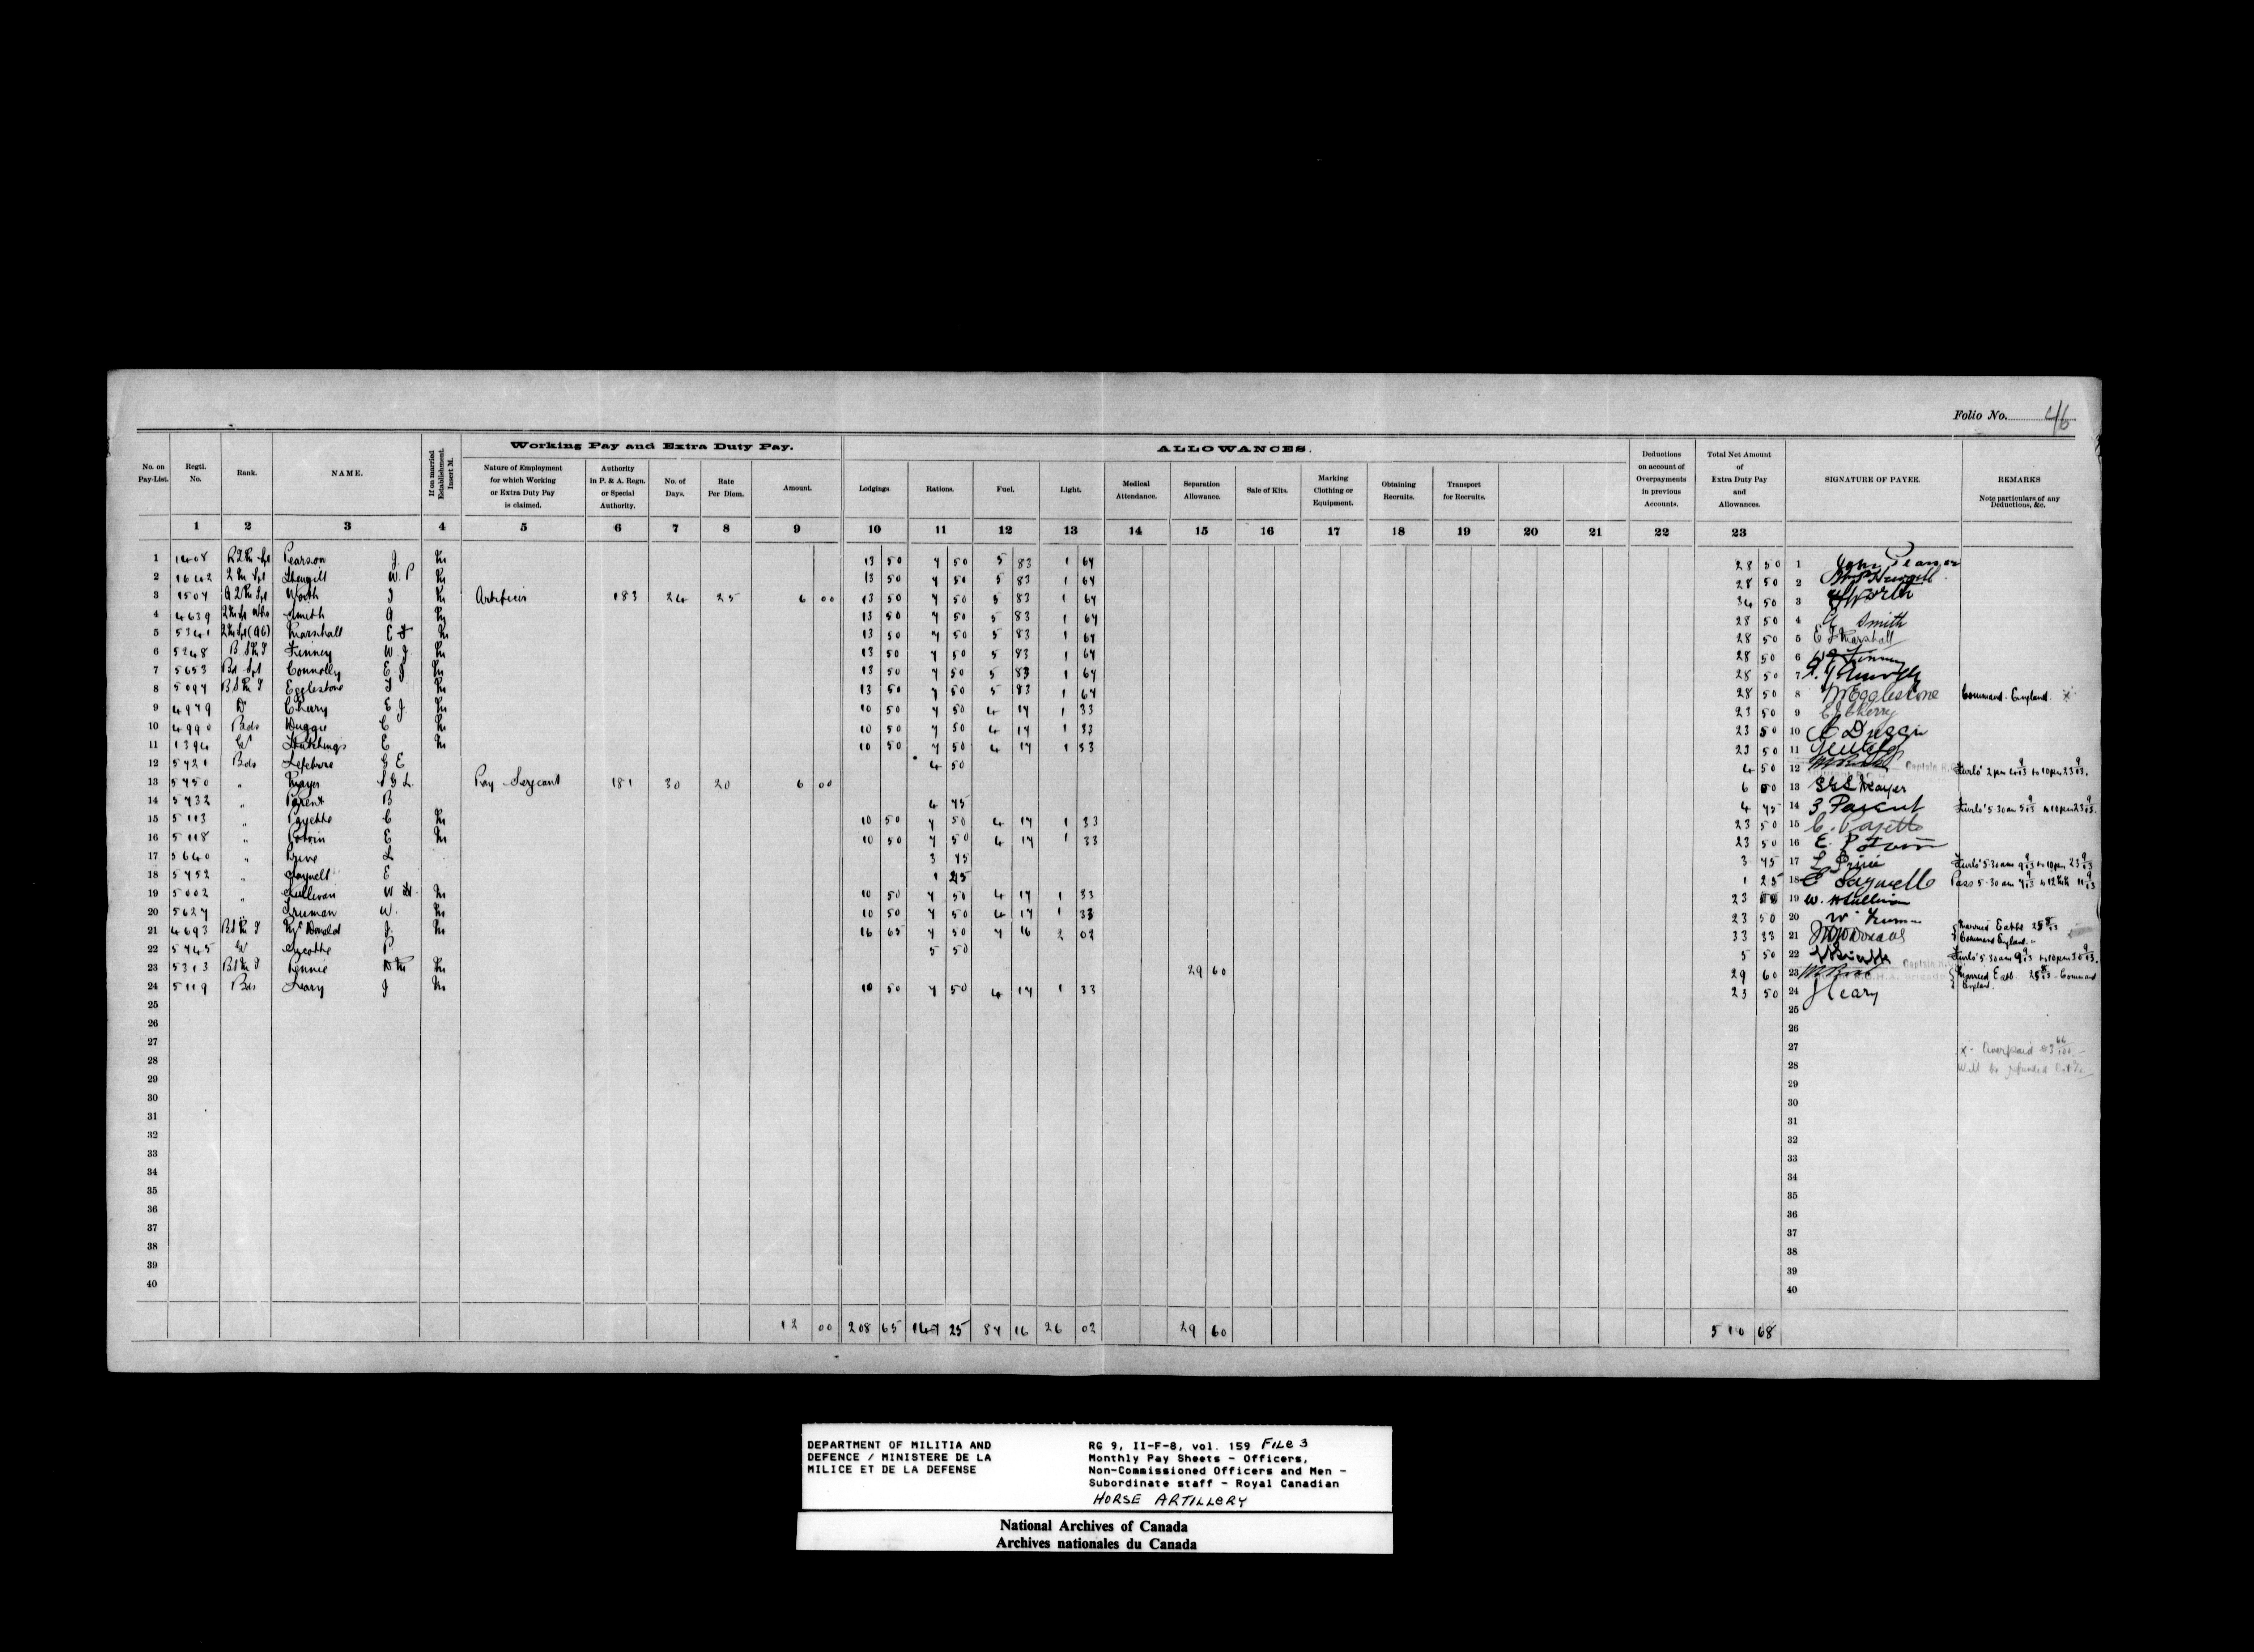 Folio No. 46
Working Pay and Extra Duty Pay.
ALLOWANCES.
No. on Pay-List.
Regtl. No.
Rank.
NAME.
If on married Establishment. Insert M.
Nature of Employment for which Working or Extra Duty Pay is claimed.
Authority in P. & A. Regn. or Special Authority.
No. of Days.
Rate Per Diem.
Amount.
Lodgings.
Rations.
Fuel.
Light.
Medical Attendance.
Separation Allowance.
Sale of Kits.
Marking Clothing or Equipment.
Obtaining Recruits.
Transport for Recruits.
Deductions on account of Overpayments in previous Accounts.
Total Net Amount of Extra Duty Pay and Allowances.
SIGNATURE OF PAYEE.
REMARKS
Note particulars of any Deductions, &c.
1 2 3 4 5 6 7 8 9 10 11 12 13 14 15 16 17 18 19 20 21 22 23
1 1408 Pearson J. M 13 50 7 50 5 83 1 67 28 50 1 John Pearson
2 1642 W. P M 13 50 7 50 5 83 1 67 28 50 2
3 1507 Worth J M Artificer 183 24 25 6 00 13 50 7 50 5 83 1 67 34 50 3 Worth
4 4639 Smith A M 13 50 7 50 5 83 1 67 28 50 4 Smith
5 5341 Marshall E F M 13 50 7 50 5 83 1 67 28 50 5 E F Marshall
6 5248 Finney W J. M 13 50 7 50 5 83 1 67 28 50 6 W J Finney
7 5653 Connolly E J M 13 50 7 50 5 83 1 67 28 50 7
8 5097 Egglestone M 13 50 7 50 5 83 1 67 28 50 8 Egglestone Command. England. x
9 4979 Cherry E J. M 10 50 7 50 4 17 1 33 23 50 9 E J Cherry
10 4990 Bds Duggie C M 10 50 7 50 4 17 1 33 23 50 10 C Duggie
11 1394 Gr Hutchings E M 10 50 7 50 4 17 1 33 23 50 11
12 5421 Bds Lefebvre G E 4 50 4 50 12 Captain Furlo' 2 pm 4 9/13 to 10 pm 23 9/13.
13 5450 " Mayer S G L. Pay Sergeant 181 30 20 6 00 6 00 13 S G L Mayer
14 5432 " Parent B 4 75 4 75 14 Parent Furlo' 5.30 am 5 9/13 to 10 pm 23 9/13.
15 5113 " Payette C M 10 50 7 50 4 17 1 33 23 50 15 C. Payette
16 5118 " Potvin E M 10 50 7 50 4 17 1 33 23 50 16 E. Potvin
17 5640 " L 3 75 3 75 17 Furlo' 5.30 am 9 9/13 to 10 pm 23 9/13
18 5452 " E 1 25 1 25 18 Pass 5.30 am 7 9/13 to 12 11 9/13
19 5002 " Sullivan W H. M 10 50 7 50 4 17 1 33 23 50 19 W. H Sullivan
20 5627 " Truman W. M 10 50 7 50 4 17 1 33 23 50 20 W. Truman
21 4693 McDonald J. M 16 65 7 50 7 16 2 02 33 33 21 Married Estabt 25 8/13 Command England.
22 5745 Gr P 5 50 5 50 22 Furlo' 5.30 am 9 9/13 to 10 pm 30 9/13.
23 5313 Rennie M 29 60 29 60 23 Captain Married Estab. 25 8/13 - Command England.
24 5119 Bds Leary J M 10 50 7 50 4 17 1 33 23 50 24 J Leary
25 25
26 26
27 27 x - Overpaid $3 66/100
28 28 Will be refunded Oct
29 29
30 30
31 31
32 32
33 33
34 34
35 35
36 36
37 37
38 38
39 39
40 40
12 00 208 65 147 25 87 16 26 02 29 60 510 68
DEPARTMENT OF MILITIA AND
DEFENCE / MINISTERE DE LA
MILICE ET DE LA DEFENSE
RG 9, II-F-8, vol. 159 FILE 3
Monthly Pay Sheets - Officers,
Non-Commissioned Officers and Men -
Subordinate staff - Royal Canadian
HORSE ARTILLERY
National Archives of Canada
Archives nationales du Canada